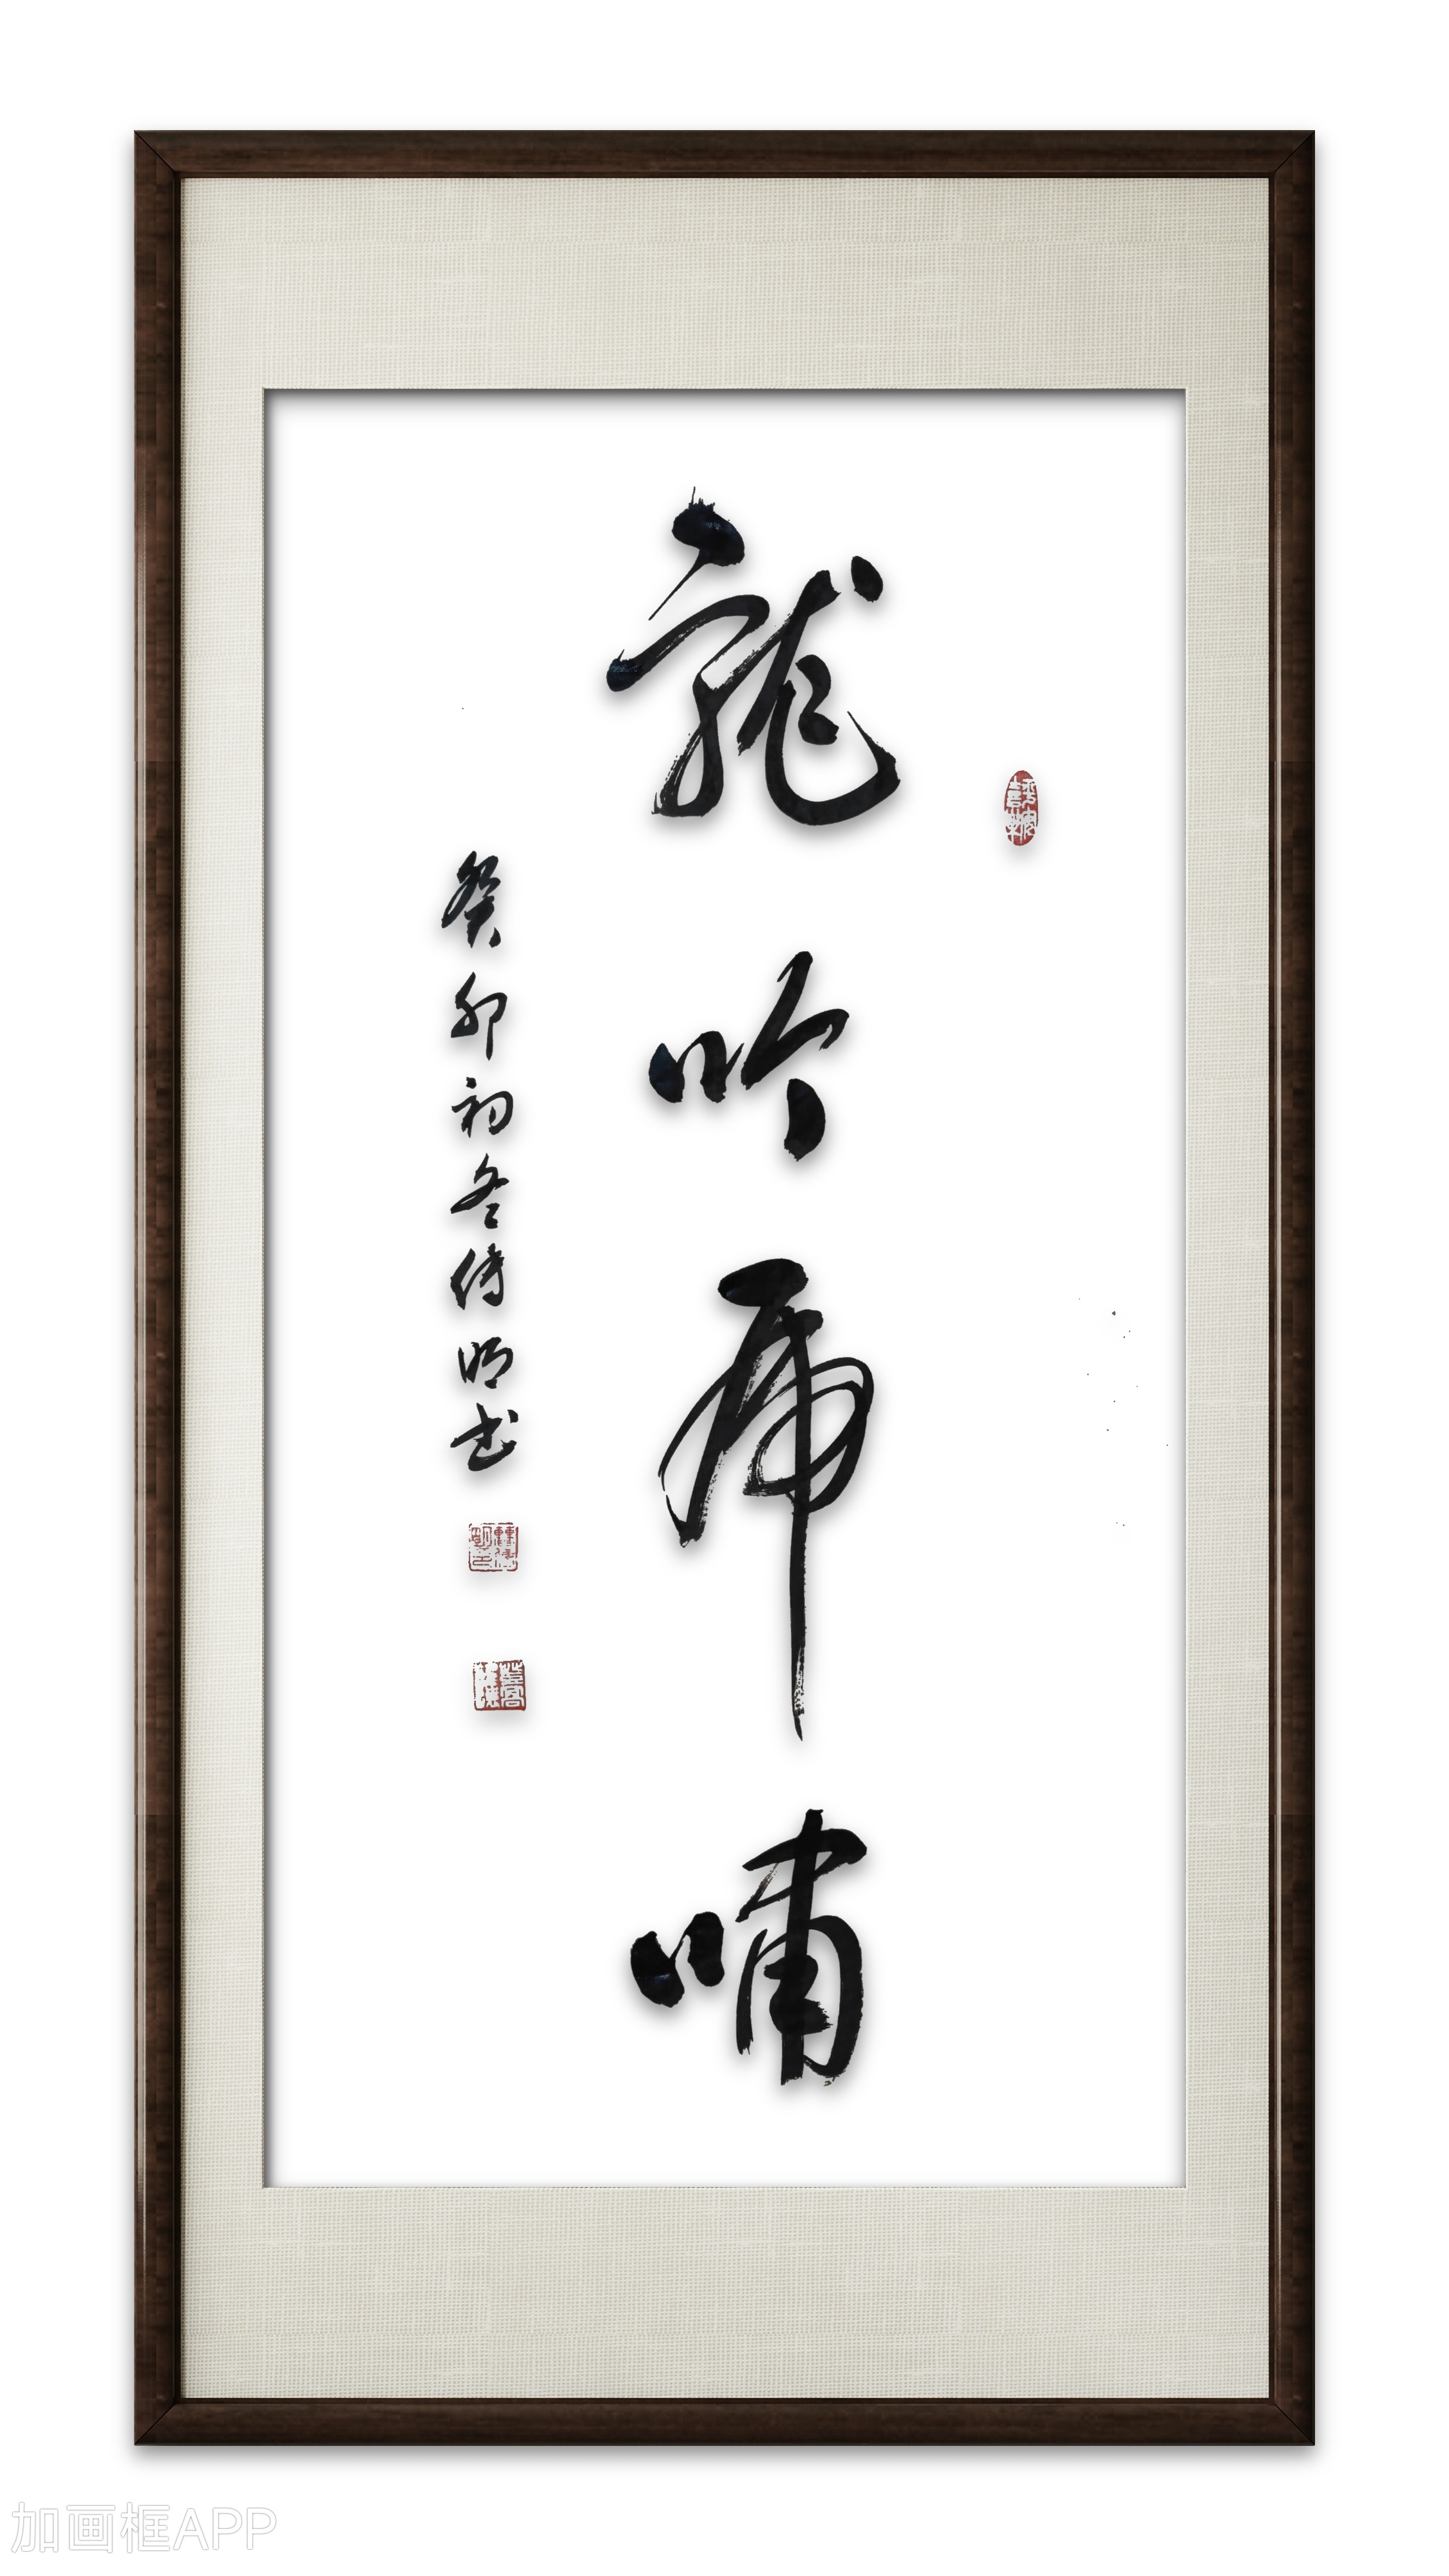 龍吟虎啸
癸卯初冬传明书
加画框APP